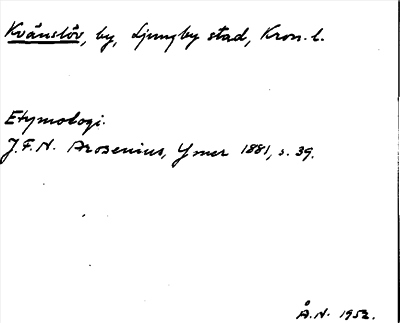 Kvänslöv, by, Ljungby stad, Kron. l.
Etymologi.
J.F.N. Arosenius, Ymer 1881, s. 39.
Å.N. 1952.